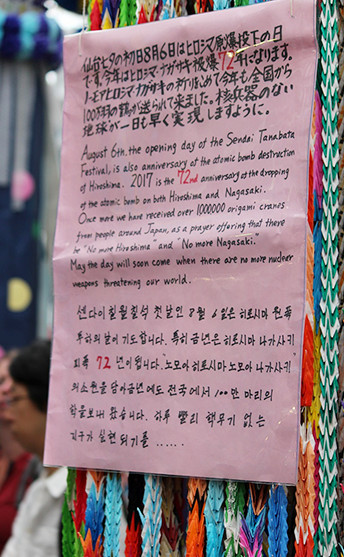 仙台七夕の初日8月6日はヒロシマ原爆投下の日
です。今年はヒロシマ・ナガサキ被爆72年になります。
ノーモアヒロシマ・ナガサキの祈りをこめて今年も全国から
100万羽の鶴が送られて来ました。核兵器のない
地球が一日も早く実現しますように。
August 6th, the opening day of the Sendai Tanabata
Festival, is also anniversary of the atomic bomb destruction
of Hiroshima. 2017 is the 72nd anniversary of the dropping
of the atomic bomb on both Hiroshima and Nagasaki.
Once more we have received over 1000000 origami cranes
from people around Japan, as a prayer offering that there
be "No more Hiroshima" and "No more Nagasaki."
May the day will soon come when there are no more nuclear
weapons threatening our world.
센다이 칠월칠석 첫날인 8월 6일은 히로시마 원폭
투하의 날이기도 합니다. 특히 금년은 히로시마 나가사키
피폭 72 년이 됩니다. "노모아 히로시마 노모아 나가사키"
의 소원을 담아 금년에도 전국에서 100만 마리의
학을 보내 왔습니다. 하루 빨리 핵무기 없는
지구가 실현되기를 ......